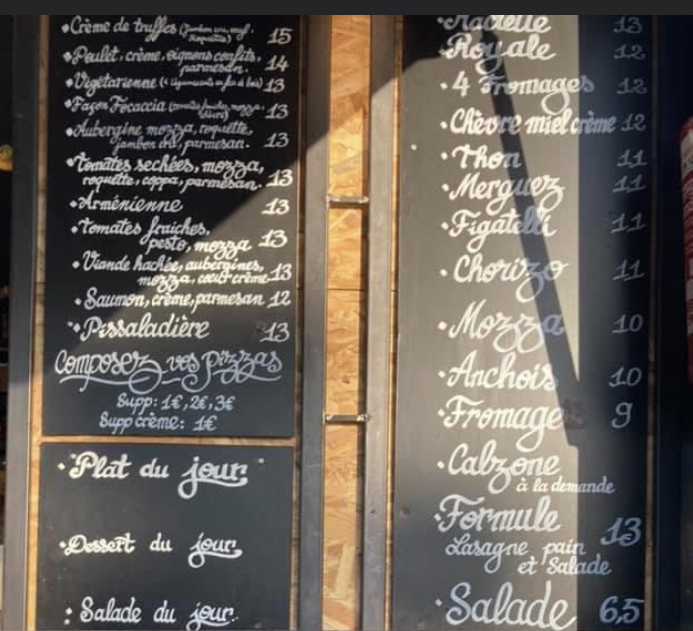 Crème de truffes (jambon cru, œuf, Roquette) 15
Poulet, crème, oignons confits, parmesan. 14
Végétarienne 13
Façon Focaccia 13
Aubergine mozza, roquette,
jambon cru, parmesan. 13
Tomates sechées, mozza,
roquette, coppa, parmesan. 13
Arménienne 13
Tomates fraiches,
pesto, mozza 13
Viande hachée, aubergines,
mozza, cœur crème. 13
Saumon, crème, parmesan 12
Pissaladière 13
Composez vos pizzas
Supp: 1€, 2€, 3€
Supp crème: 1€
Plat du jour
Dessert du jour
: Salade du jour
Raclette 13
Royale 12
4 Fromages 12
Chèvre miel crème 12
Thon 11
Merguez 11
Figatelli 11
Chorizo 11
Mozza 10
Anchois 10
Fromage 9
Calzone
à la demande
Formule 13
Lasagne pain
et Salade
Salade 6,5